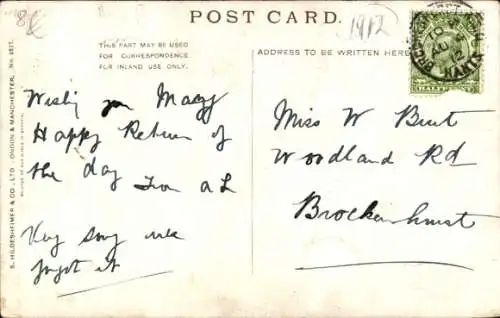 POST CARD.
1912
THIS PART MAY BE USED
FOR CORRESPONDENCE.
FOR INLAND USE ONLY.
ADDRESS TO BE WRITTEN HERE
HALF
HANTS
S. HILDESHEIMER & CO., LTD. LONDON & MANCHESTER. No.
Wishing you Many
Happy Return of
the day from a L
Very sorry we
forgot it
Miss W
Woodland Rd
Brockenhurst